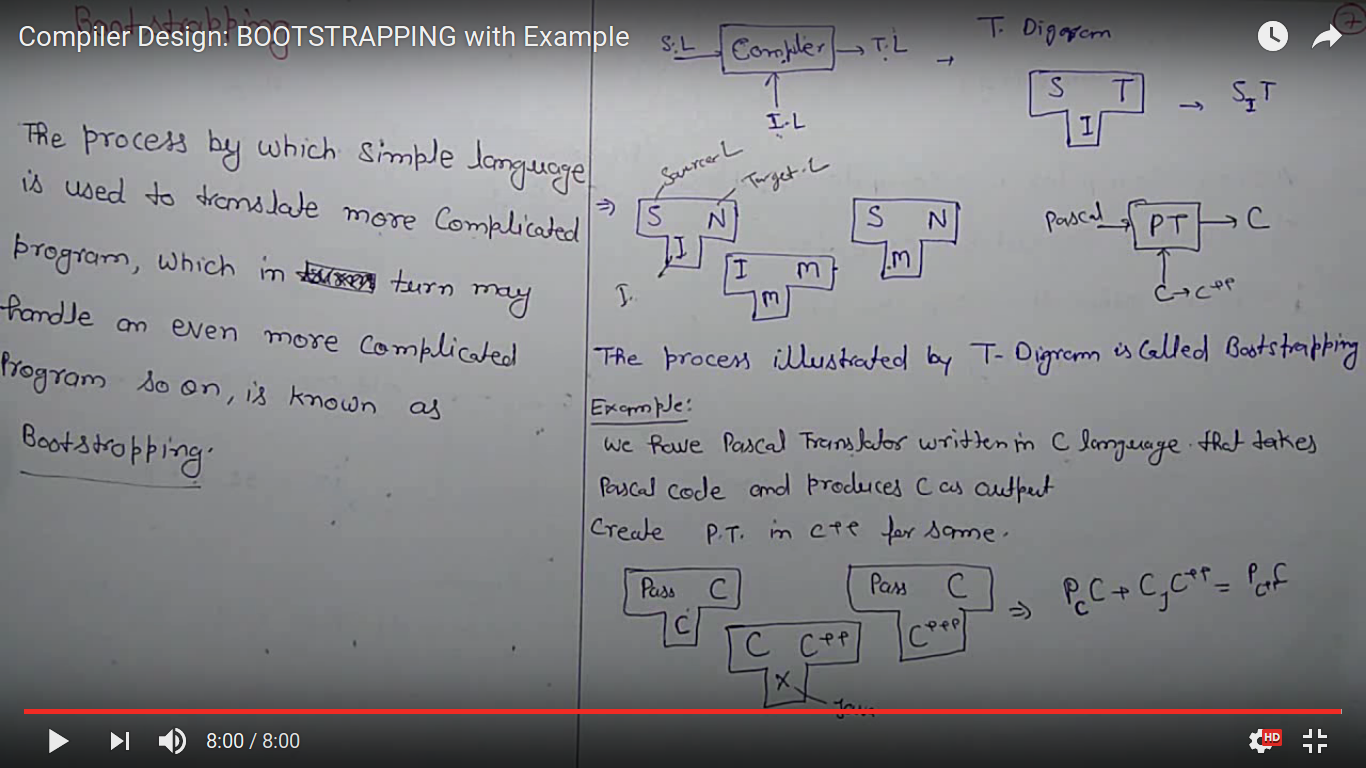 Bootstrapping
Compiler Design: BOOTSTRAPPING with Example
7
The process by which simple language
is used to translate more complicated
program, which in turn may
handle an even more complicated
Program so on, is known as
Bootstropping.
S.L → Compiler → T.L → T. Digaram
I.L
S T
I
→ S I T
Source L
Target.L
⇒ S N
I
I.
I M
M
S N
M
Pascal → PT → C
C→C++
The process illustrated by T-Digram is Called Bootstrapping
Example:
We have Pascal Translator written in C language that takes
Pascal code and produces C as output
Create P.T. in C++ for same.
Pass C
C
C C++
X
Pass C
C+++
⇒ P C C + C J C++ = P C++ C
HD
8:00 / 8:00